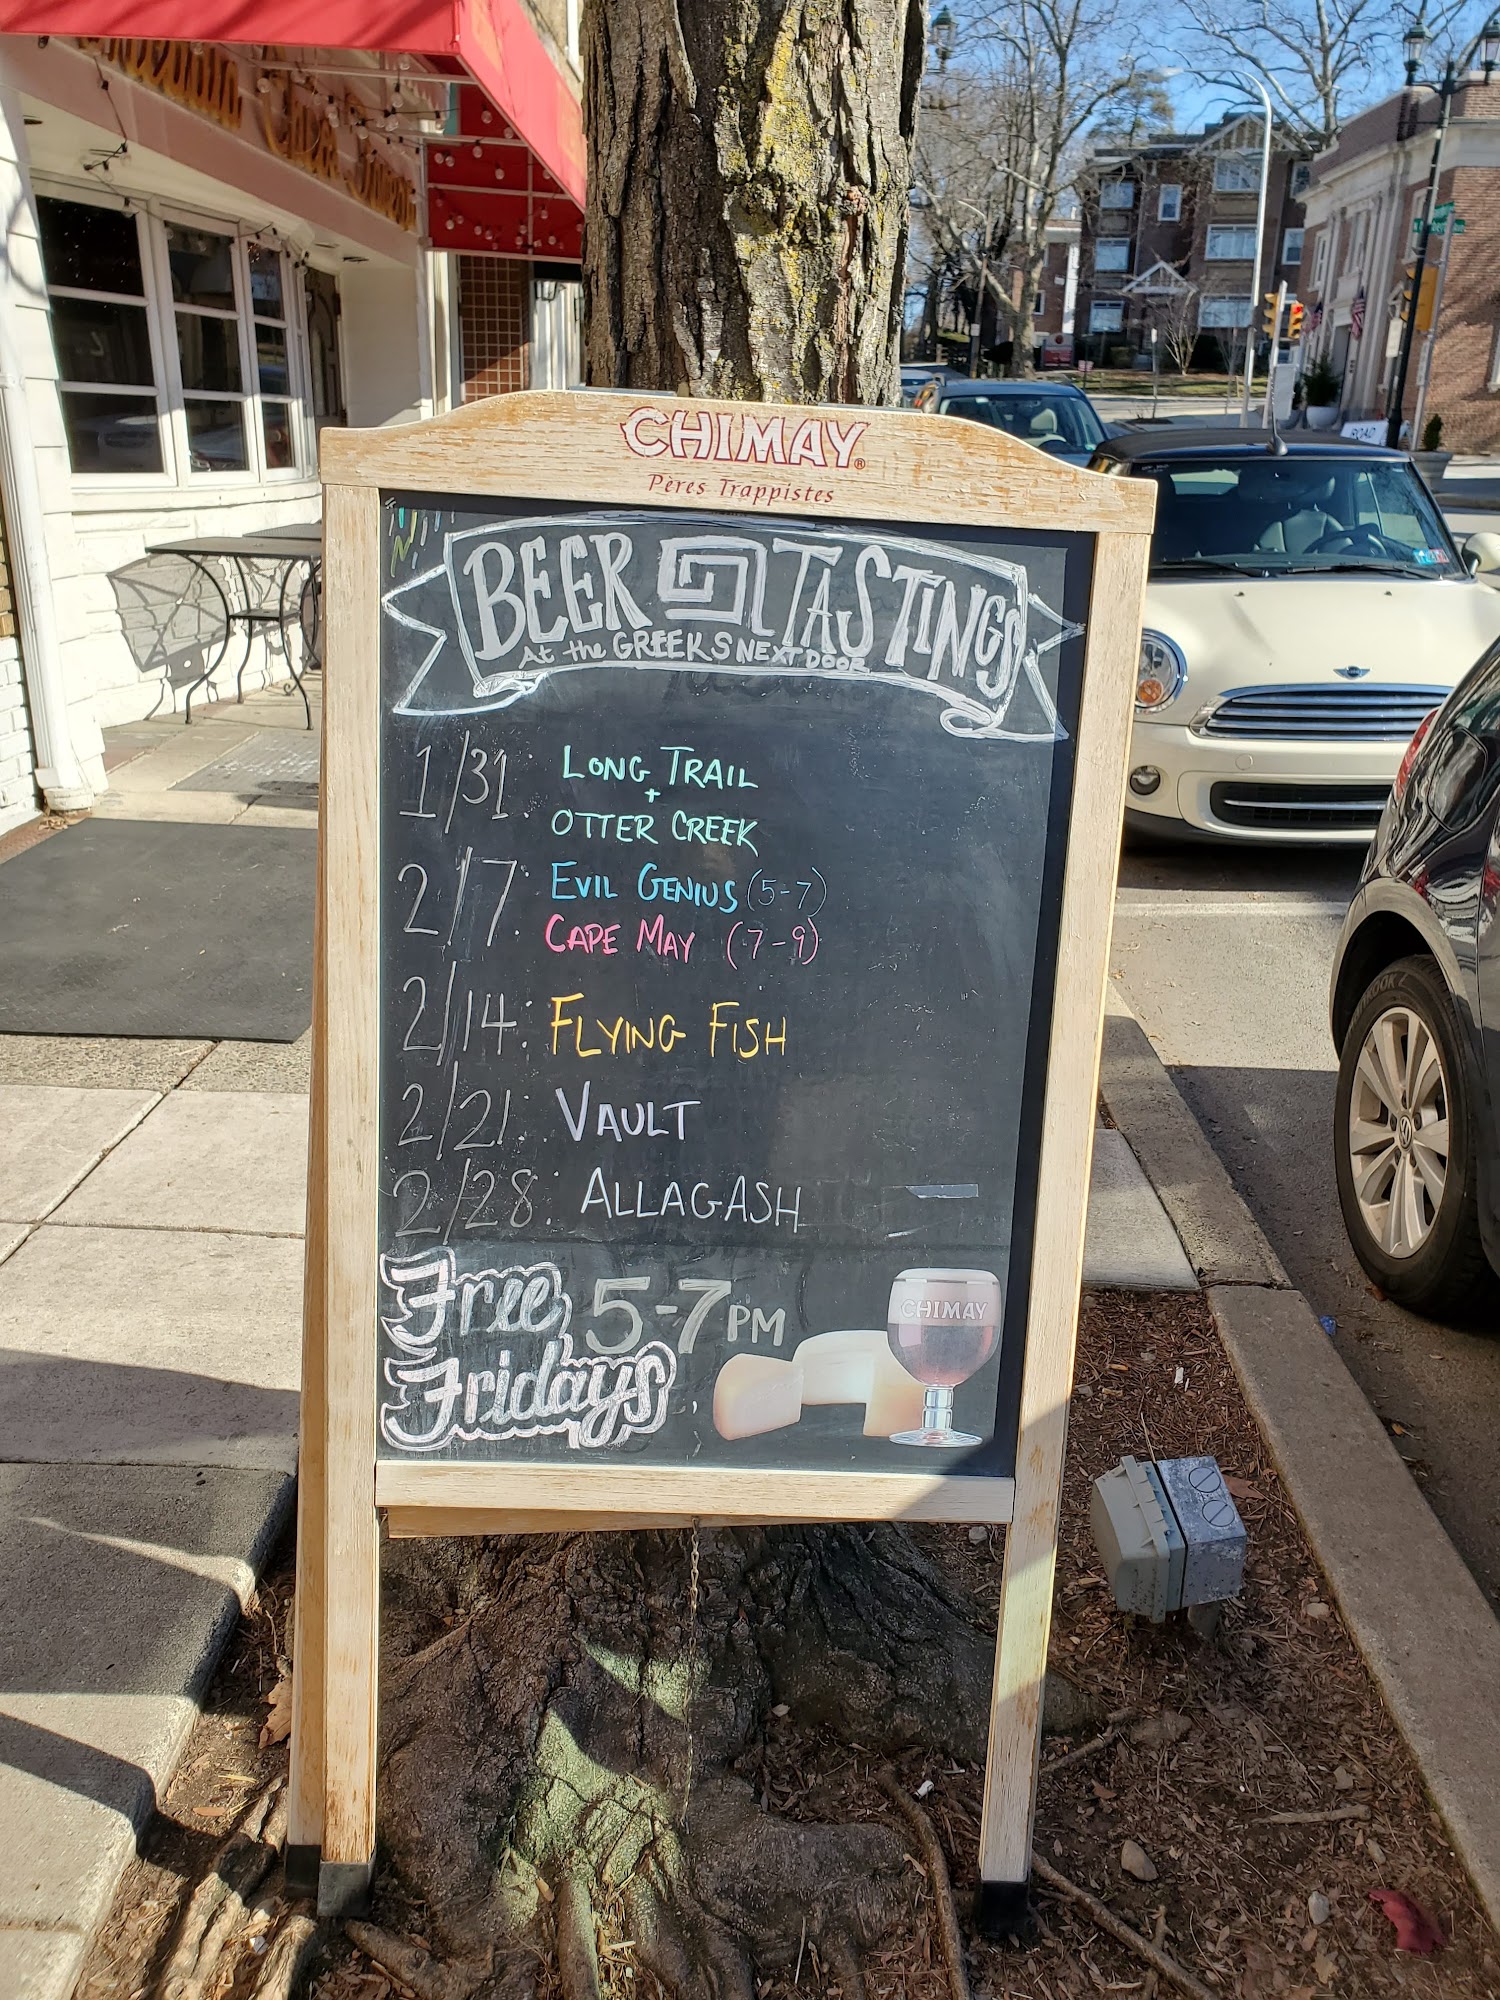 CHIMAY®
Pères Trappistes
BEER TASTINGS
At the GREEKS NEXT DOOR
1/31: LONG TRAIL
+
OTTER CREEK
2/7: EVIL GENIUS (5-7)
CAPE MAY (7-9)
2/14: FLYING FISH
2/21: VAULT
2/28: ALLAGASH
Free 5-7 PM
Fridays
CHIMAY